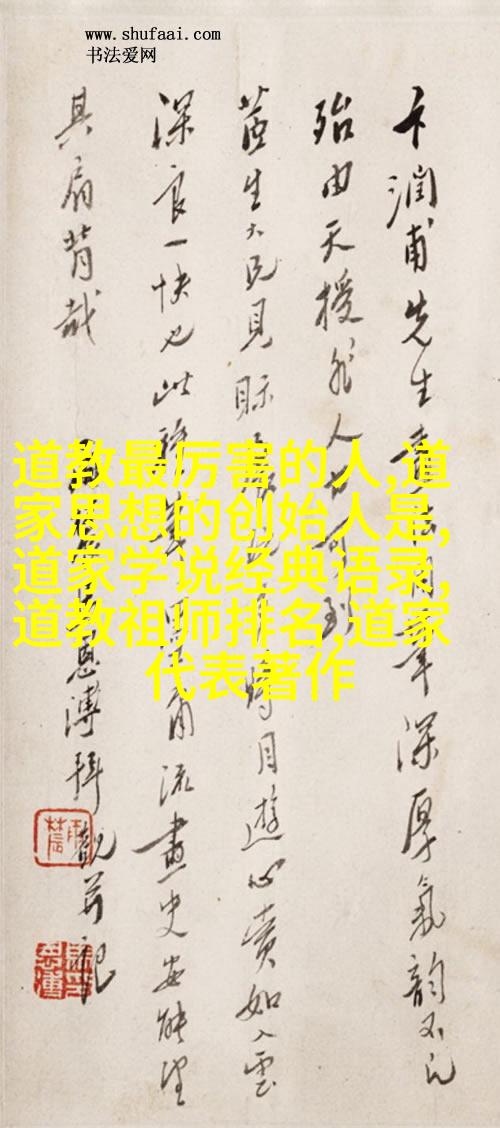 www.shufaai.com
书法爱网
道教最厉害的人,道
家思想的创始人是,
道家学说经典语录,
道教祖师排名,道家
代表著作
卞润甫先生
深厚氣韵不凡
殆由天授非人
茁生大兄見眎
得目遊心賞如入雲
深良一快也此
角流畫史安能望
其肩背哉
恩溥拜觀并記